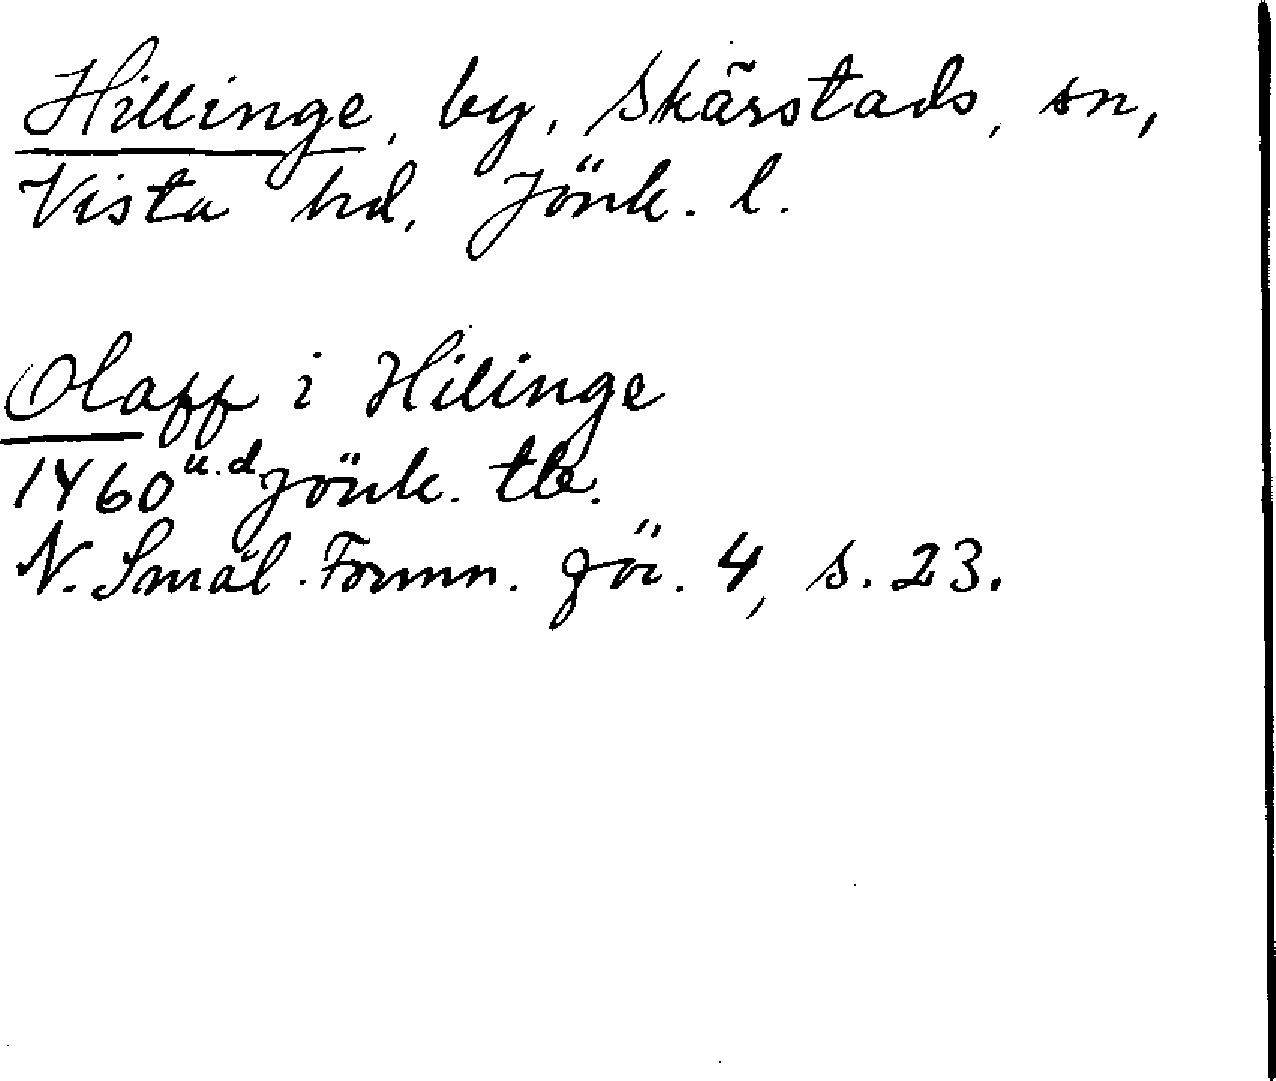 Hillinge, by, Skärstads, sn,
Vista hd, Jönk. l.
Olaff i Hilinge
1460 u.d. Jönk. tb.
N. Smål. Fornm. för. 4, s. 23.